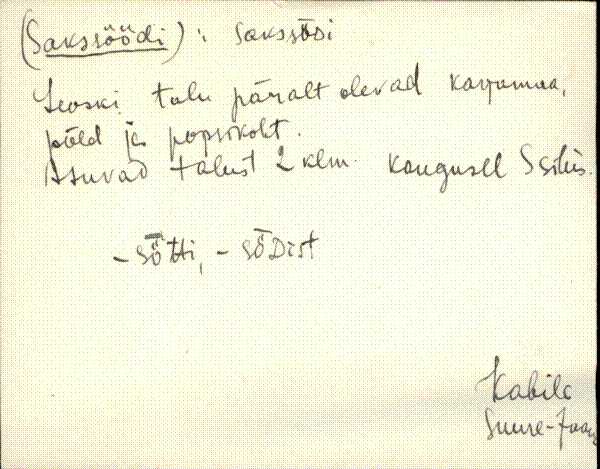 (Sakssöödi) : sakssȫDi
Leoski talu päralt olevad karjamaa,
põld ja popsikoht.
Asuvad talust 2 klm kaugusel S sihis.
- sȫtti, - sȫDist
Kabila
Suure-Jaani